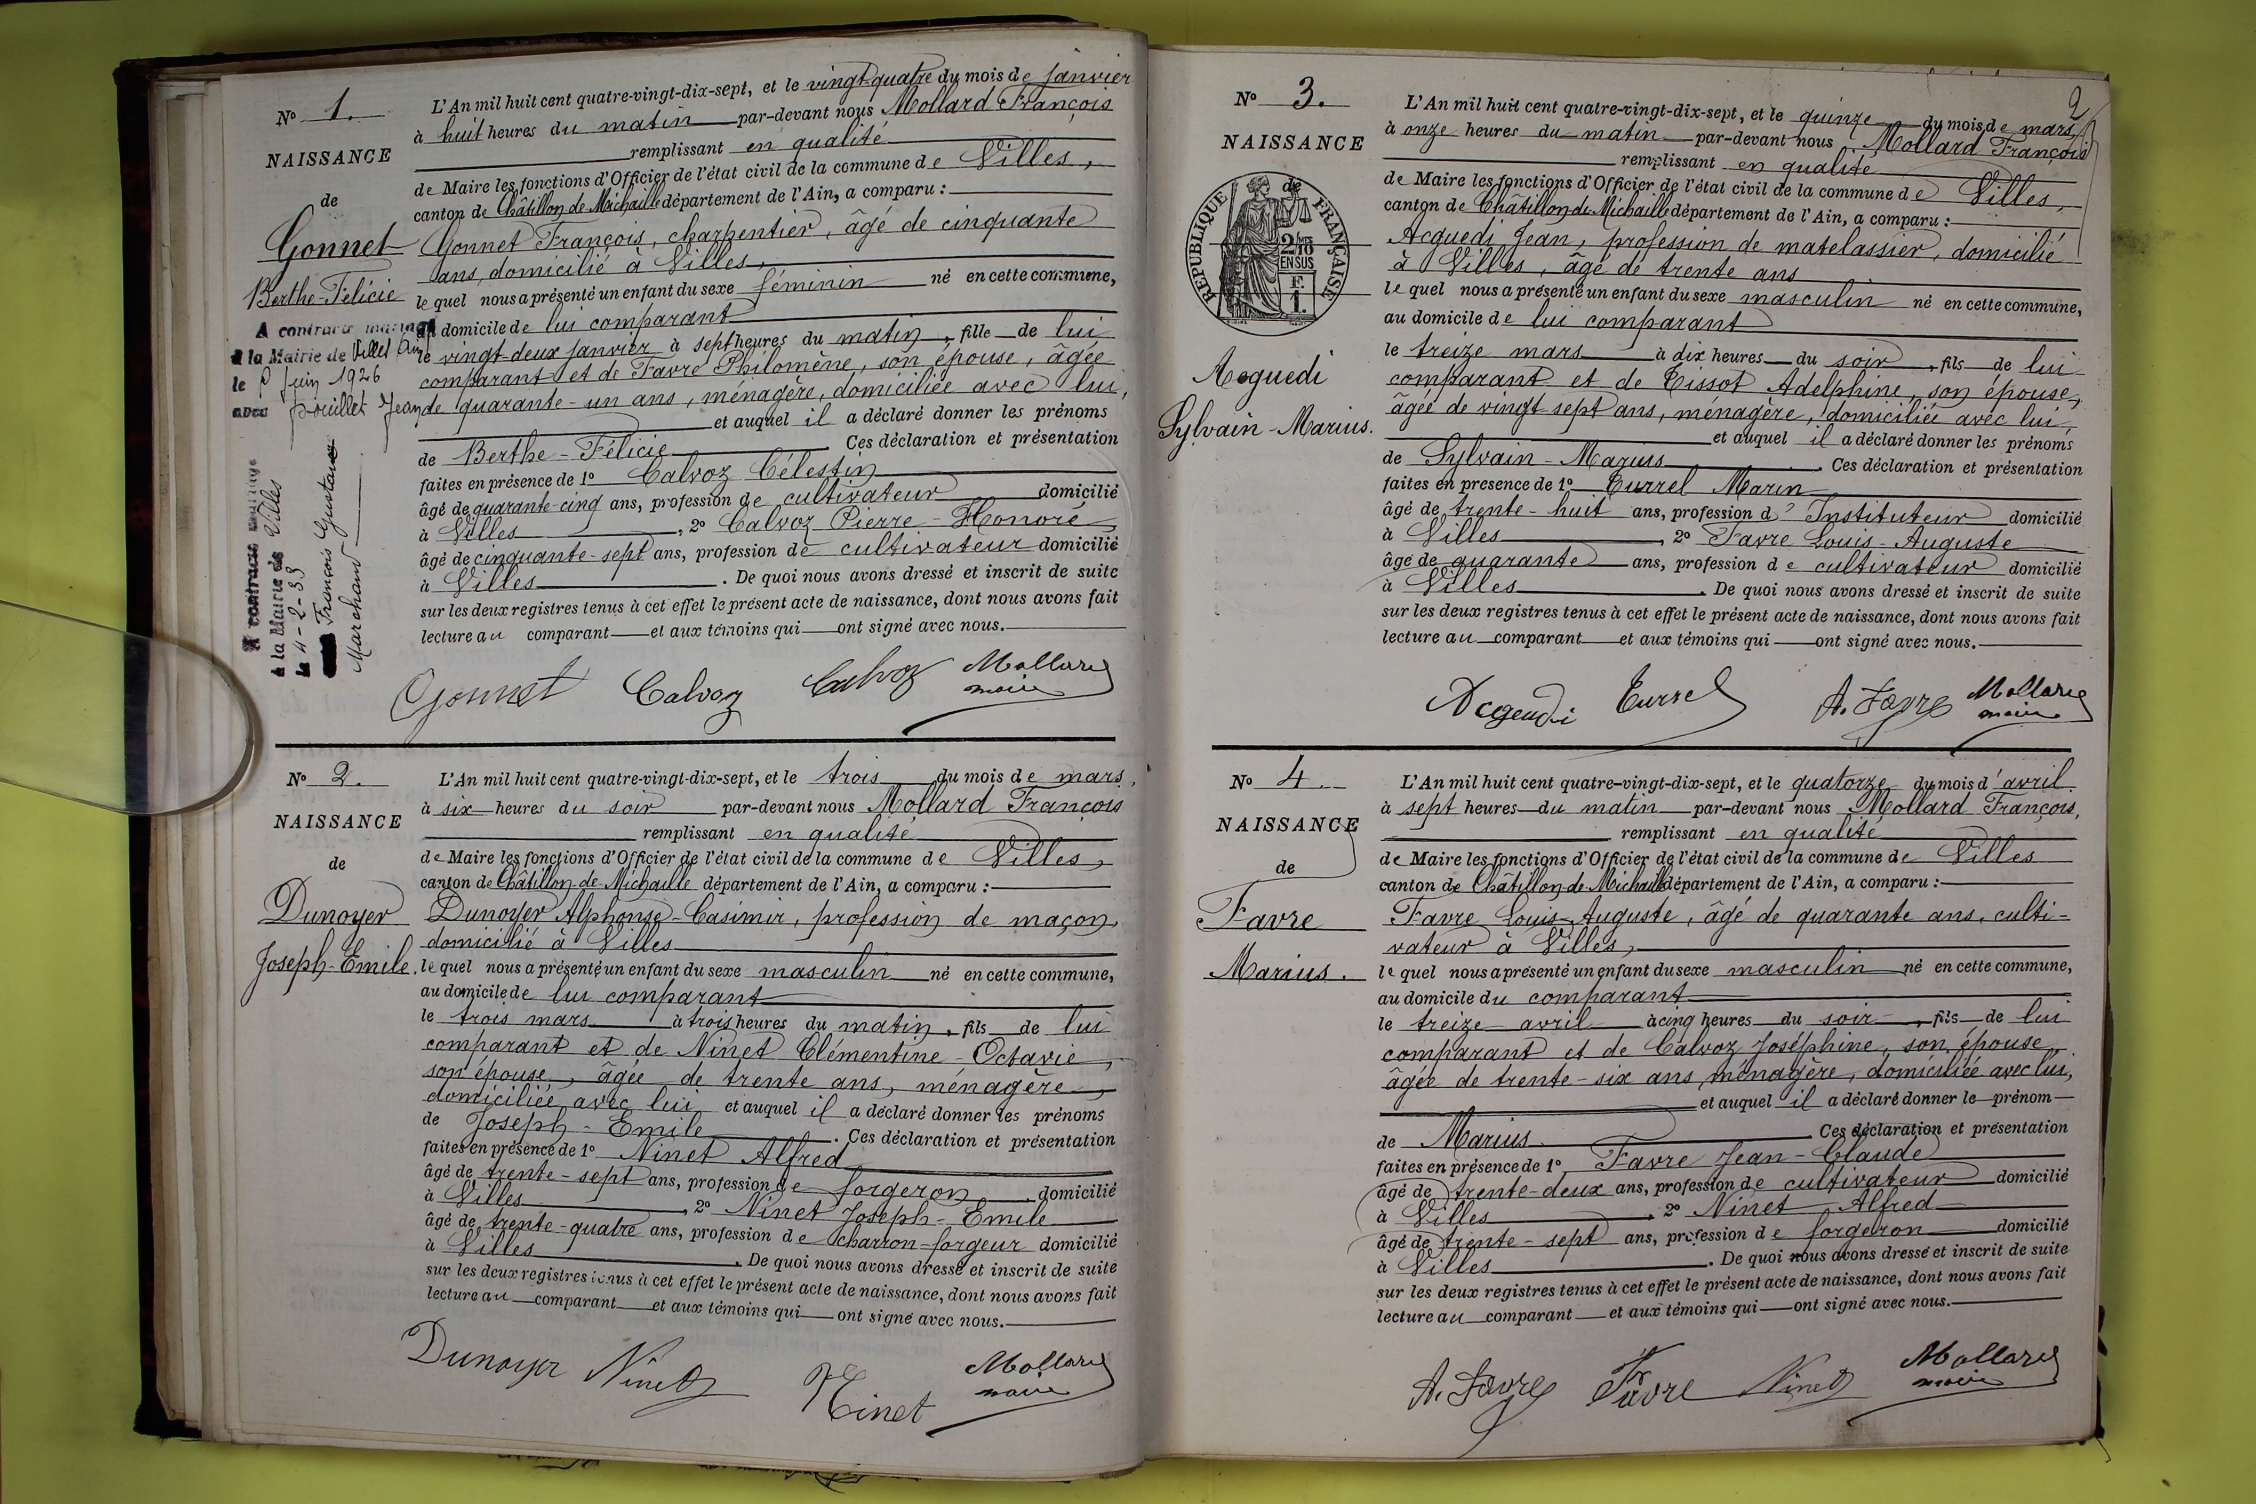 Nº 1.
NAISSANCE
de
Gonnet
Berthe-Félicie
A contracté mariage
à la Mairie de Villes Ain
le juin 1926
avec Jean
A contracté mariage
à la Mairie de Villes
le 4-2-33
François Gustave
Marchand
L'An mil huit cent quatre-vingt-dix-sept, et le vingt-quatre du mois de janvier
à huit heures du matin par-devant nous Mollard François
remplissant en qualité
de Maire les fonctions d'Officier de l'état civil de la commune de Villes,
canton de Châtillon de Michaille département de l'Ain, a comparu :
Gonnet François, charpentier, âgé de cinquante
ans, domicilié à Villes,
lequel nous a présenté un enfant du sexe féminin né en cette commune,
au domicile de lui comparant
le vingt-deux janvier à sept heures du matin, fille de lui
comparant et de Favre Philomène, son épouse, âgée
de quarante-un ans, ménagère, domiciliée avec lui,
et auquel il a déclaré donner les prénoms
de Berthe-Félicie. Ces déclaration et présentation
faites en présence de 1º Calvoz Célestin
âgé de quarante-cinq ans, profession de cultivateur domicilié
à Villes, 2º Calvoz Pierre-Honoré
âgé de cinquante-sept ans, profession de cultivateur domicilié
à Villes. De quoi nous avons dressé et inscrit de suite
sur les deux registres tenus à cet effet le présent acte de naissance, dont nous avons fait
lecture au comparant et aux témoins qui ont signé avec nous.
Gonnet Calvoz Calvoz Mollard
maire
Nº 2.
NAISSANCE
de
Dunoyer
Joseph-Emile.
L'An mil huit cent quatre-vingt-dix-sept, et le trois du mois de mars,
à six heures du soir par-devant nous Mollard François
remplissant en qualité
de Maire les fonctions d'Officier de l'état civil de la commune de Villes,
canton de Châtillon de Michaille département de l'Ain, a comparu :
Dunoyer Alphonse-Casimir, profession de maçon,
domicilié à Villes
lequel nous a présenté un enfant du sexe masculin né en cette commune,
au domicile de lui comparant
le trois mars à trois heures du matin, fils de lui
comparant et de Ninet Clémentine-Octavie,
son épouse, âgée de trente ans, ménagère,
domiciliée avec lui et auquel il a déclaré donner les prénoms
de Joseph-Emile. Ces déclaration et présentation
faites en présence de 1º Ninet Alfred
âgé de trente-sept ans, profession de forgeron domicilié
à Villes, 2º Ninet Joseph-Emile
âgé de trente-quatre ans, profession de charron-forgeur domicilié
à Villes. De quoi nous avons dressé et inscrit de suite
sur les deux registres tenus à cet effet le présent acte de naissance, dont nous avons fait
lecture au comparant et aux témoins qui ont signé avec nous.
Dunoyer Ninet Ninet Mollard
maire
2
Nº 3.
NAISSANCE
de
RÉPUBLIQUE FRANÇAISE
2/10
EN SUS
F.
1.
Acquedi
Sylvain-Marius.
L'An mil huit cent quatre-vingt-dix-sept, et le quinze du mois de mars,
à onze heures du matin par-devant nous Mollard François
remplissant en qualité
de Maire les fonctions d'Officier de l'état civil de la commune de Villes,
canton de Châtillon de Michaille département de l'Ain, a comparu :
Acquedi Jean, profession de matelassier, domicilié
à Villes, âgé de trente ans
lequel nous a présenté un enfant du sexe masculin né en cette commune,
au domicile de lui comparant
le treize mars à dix heures du soir, fils de lui
comparant et de Tissot Adelphine, son épouse,
âgée de vingt-sept ans, ménagère, domiciliée avec lui,
et auquel il a déclaré donner les prénoms
de Sylvain-Marius. Ces déclaration et présentation
faites en présence de 1º Turrel Marin
âgé de trente-huit ans, profession d'Instituteur domicilié
à Villes, 2º Favre Louis-Auguste
âgé de quarante ans, profession de cultivateur domicilié
à Villes. De quoi nous avons dressé et inscrit de suite
sur les deux registres tenus à cet effet le présent acte de naissance, dont nous avons fait
lecture au comparant et aux témoins qui ont signé avec nous.
Turrel A. Favre Mollard
maire
Nº 4.
NAISSANCE
de
Favre
Marius.
L'An mil huit cent quatre-vingt-dix-sept, et le quatorze du mois d'avril
à sept heures du matin par-devant nous Mollard François,
remplissant en qualité
de Maire les fonctions d'Officier de l'état civil de la commune de Villes
canton de Châtillon de Michaille département de l'Ain, a comparu :
Favre Louis-Auguste, âgé de quarante ans, culti=
vateur à Villes,
lequel nous a présenté un enfant du sexe masculin né en cette commune,
au domicile du comparant
le treize avril à cinq heures du soir, fils de lui
comparant et de Calvoz Joséphine, son épouse,
âgée de trente-six ans, ménagère, domiciliée avec lui,
et auquel il a déclaré donner le prénom
de Marius. Ces déclaration et présentation
faites en présence de 1º Favre Jean-Claude
âgé de trente-deux ans, profession de cultivateur domicilié
à Villes, 2º Ninet Alfred
âgé de trente-sept ans, profession de forgeron domicilié
à Villes. De quoi nous avons dressé et inscrit de suite
sur les deux registres tenus à cet effet le présent acte de naissance, dont nous avons fait
lecture au comparant et aux témoins qui ont signé avec nous.
A. Favre Favre Ninet Mollard
maire